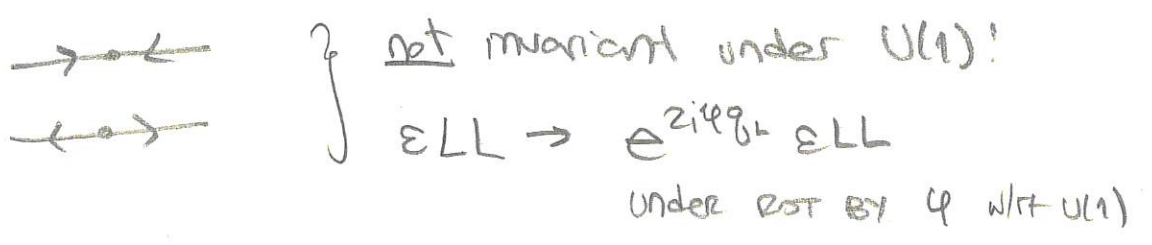 not invariant under U(1)!
εLL → e^{2iφq_L} εLL
under ROT BY φ w/rt U(1)